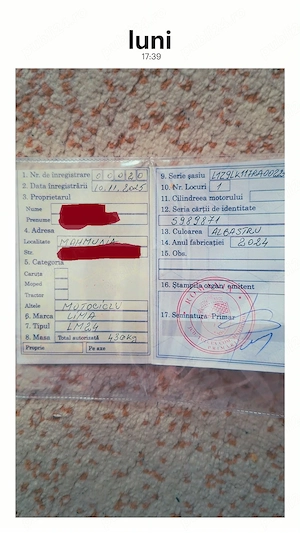 luni
17:39
1. Nr. de înregistrare 00020
2. Data înregistrării 10.11.2025
3. Proprietarul
Nume
Prenume
4. Adresa
Localitate
Str.
5. Categoria
Caruta
Moped
Tractor
Altele MOTOCICLU
6. Marca LIMA
7. Tipul
8. Masa Total autorizată 430kg
Proprie Pe axe
9. Serie șasiu
10. Nr. Locuri 1
11. Cilindreea motorului
12. Seria cărții de identitate
5989871
13. Culoarea ALBASTRU
14. Anul fabricației 2024
15. Obs.
16. Stampila organ emitent
17. Semnatura: Primar